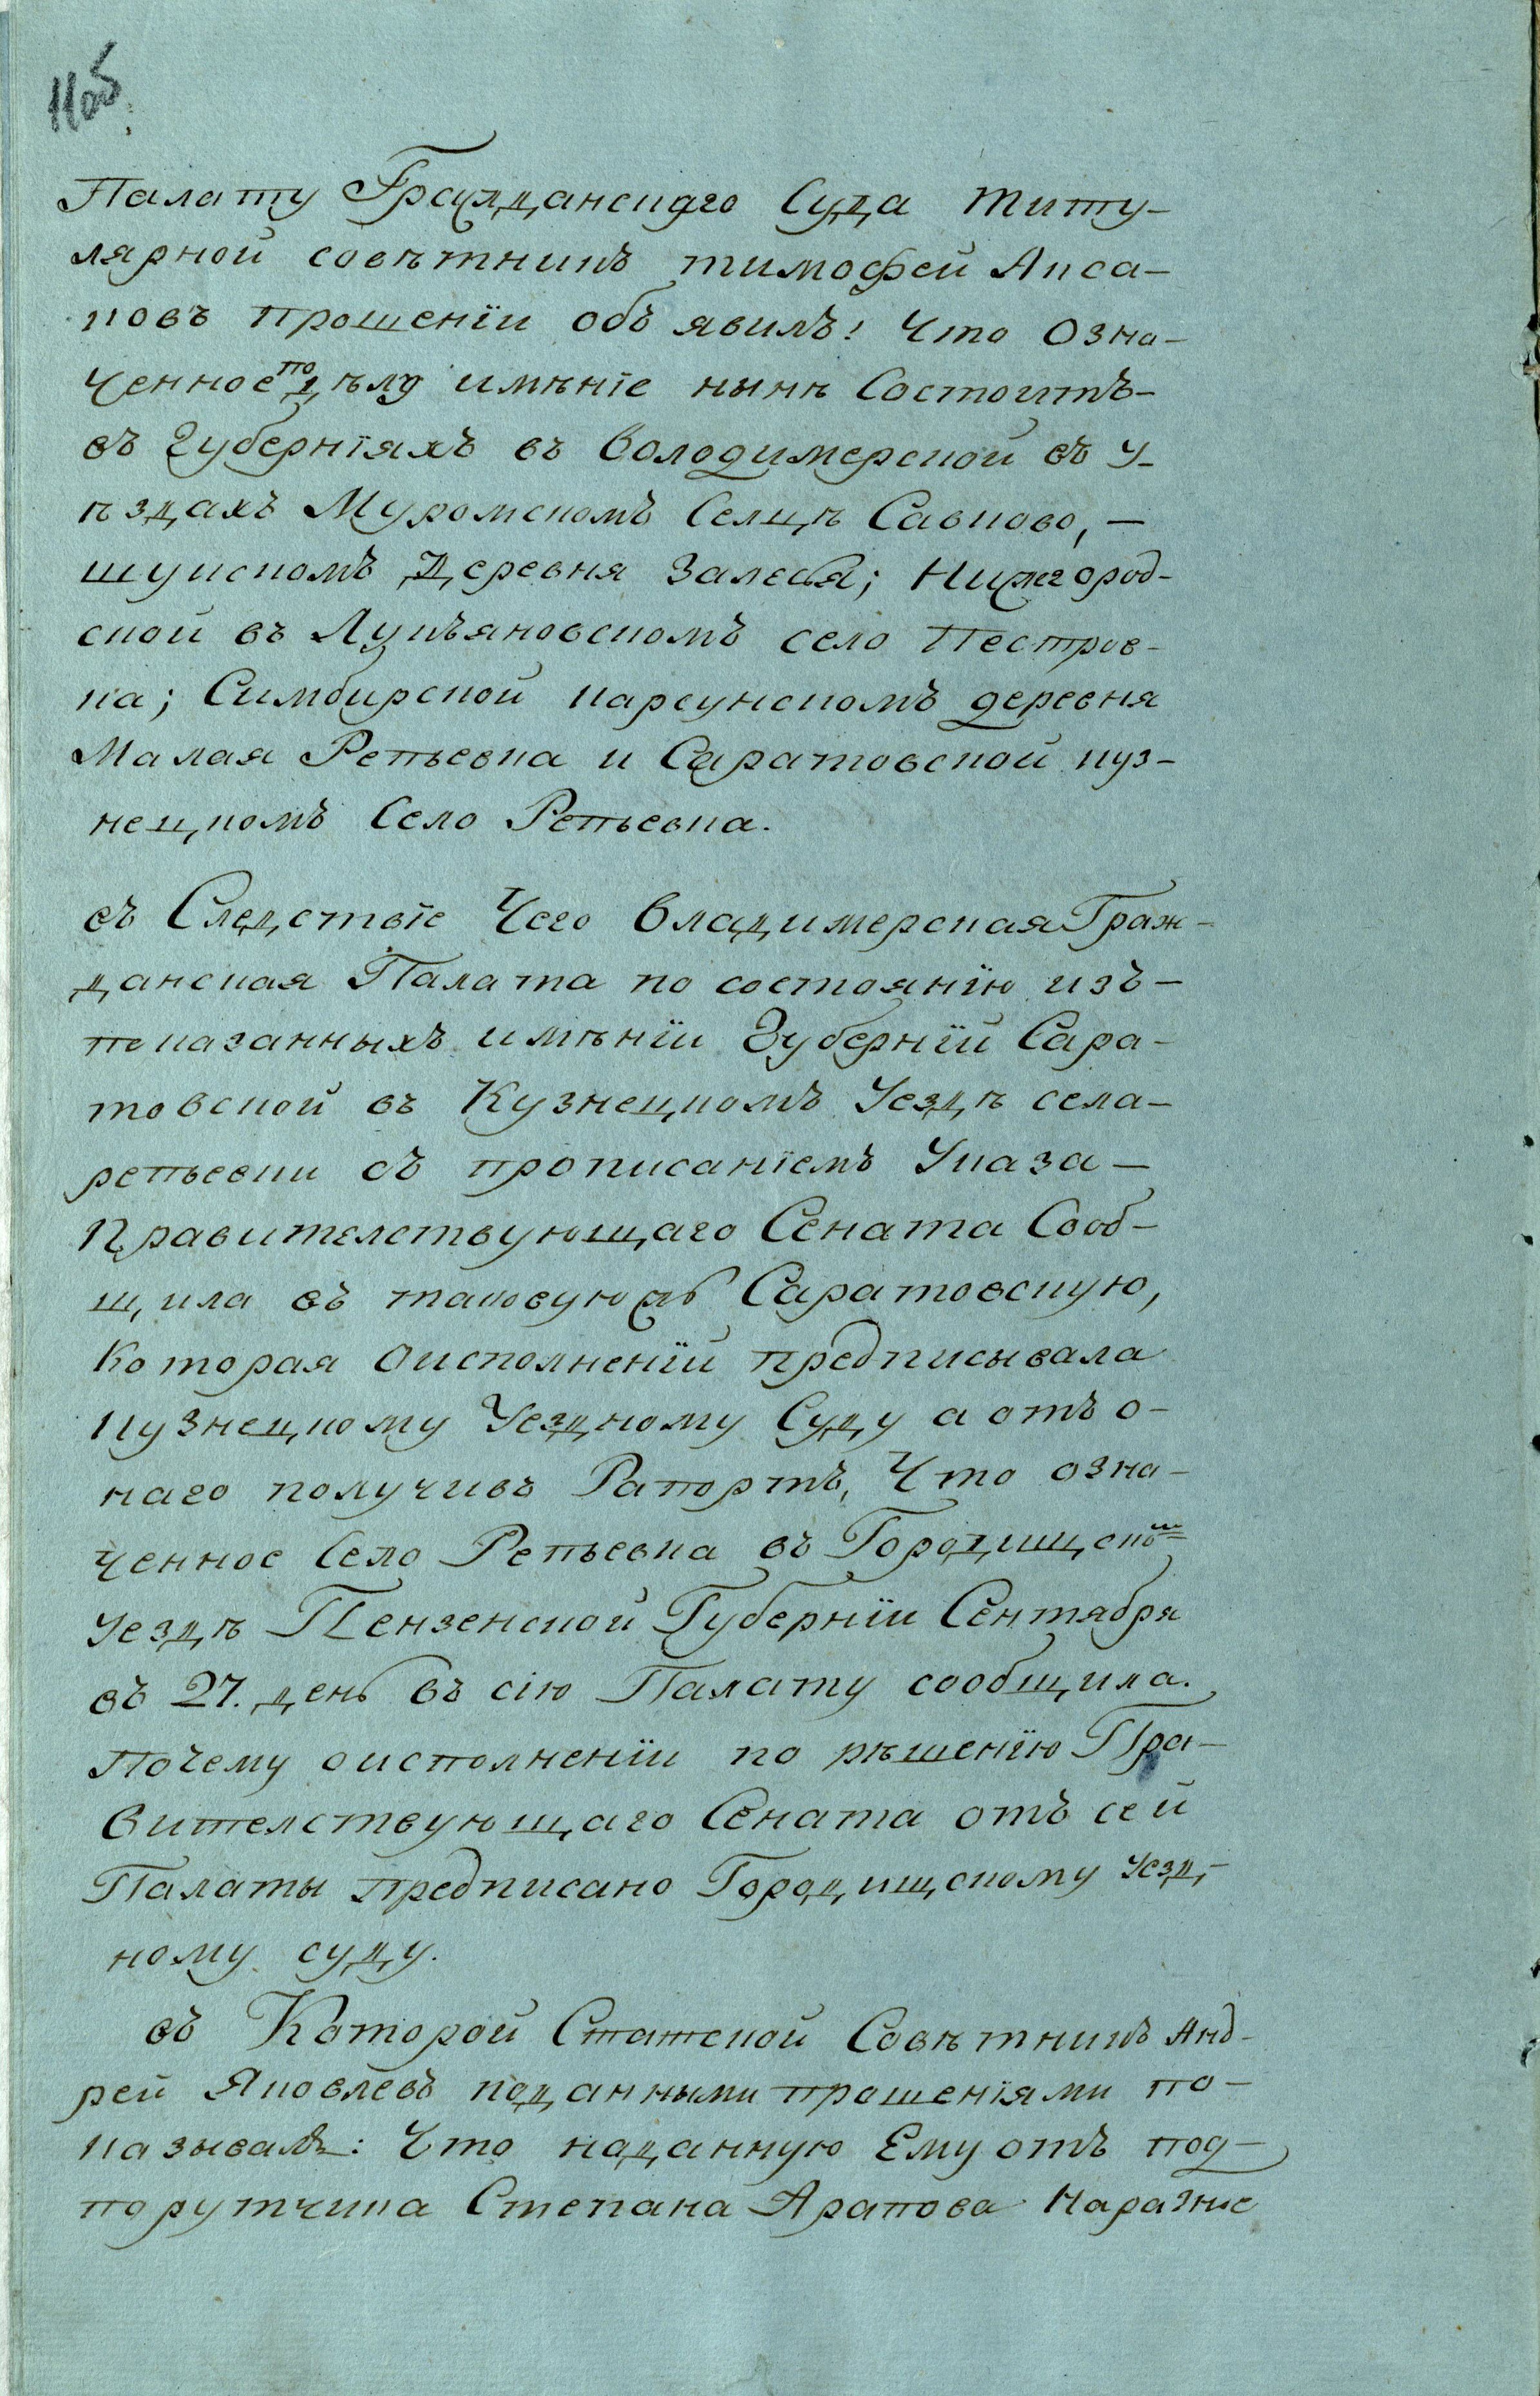 11об.
Палату Гражданскаго Суда титу-
лярной советникъ тимофей Акса-
ковъ прошенїи объ явилъ: Что Озна-
ченное по дѣлу имѣнїе нынѣ Состоитъ-
въ Губернїяхъ въ Володимерской въ У-
ѣздахъ Муромскомъ Селцѣ Савково,-
шуискомъ деревня Залесья; Нижегород-
ской въ Лукъяновскомъ село Пестров-
ка; Симбирской карсунскомъ деревня
Малая Репьевка и Саратовской куз-
нецкомъ Село Репьевка.
въ Следствїе Чего Владимерская Граж-
данская Палата по состоянїю изъ-
показанныхъ имѣнїи Губернїй Сара-
товской въ Кузнецкомъ Уездѣ села-
репьевки съ прописанїемъ Указа-
Правителствующаго Сената Сооб-
щила въ таковую жъ Саратовскую,
Которая оисполненїй предписывала
кузнецкому Уездному Суду а отъ о-
наго получивъ Рапортъ, Что озна-
ченное Село Репьевка въ Городищско м
Уездѣ Пензенской Губернїи Сентября
въ 27. день въ сїю Палату сообщила.
Почему оисполненїи по рѣшенїю Пра-
Вителствующаго Сената отъ сей
Палаты предписано Городищскому Уезд-
ному суду.
въ Которой Статской Совѣтникъ Анд-
рей Яковлевъ поданными прошенїями по-
казывалъ: Что наданную Ему отъ под-
порутчика Степана Арапова Нарачне